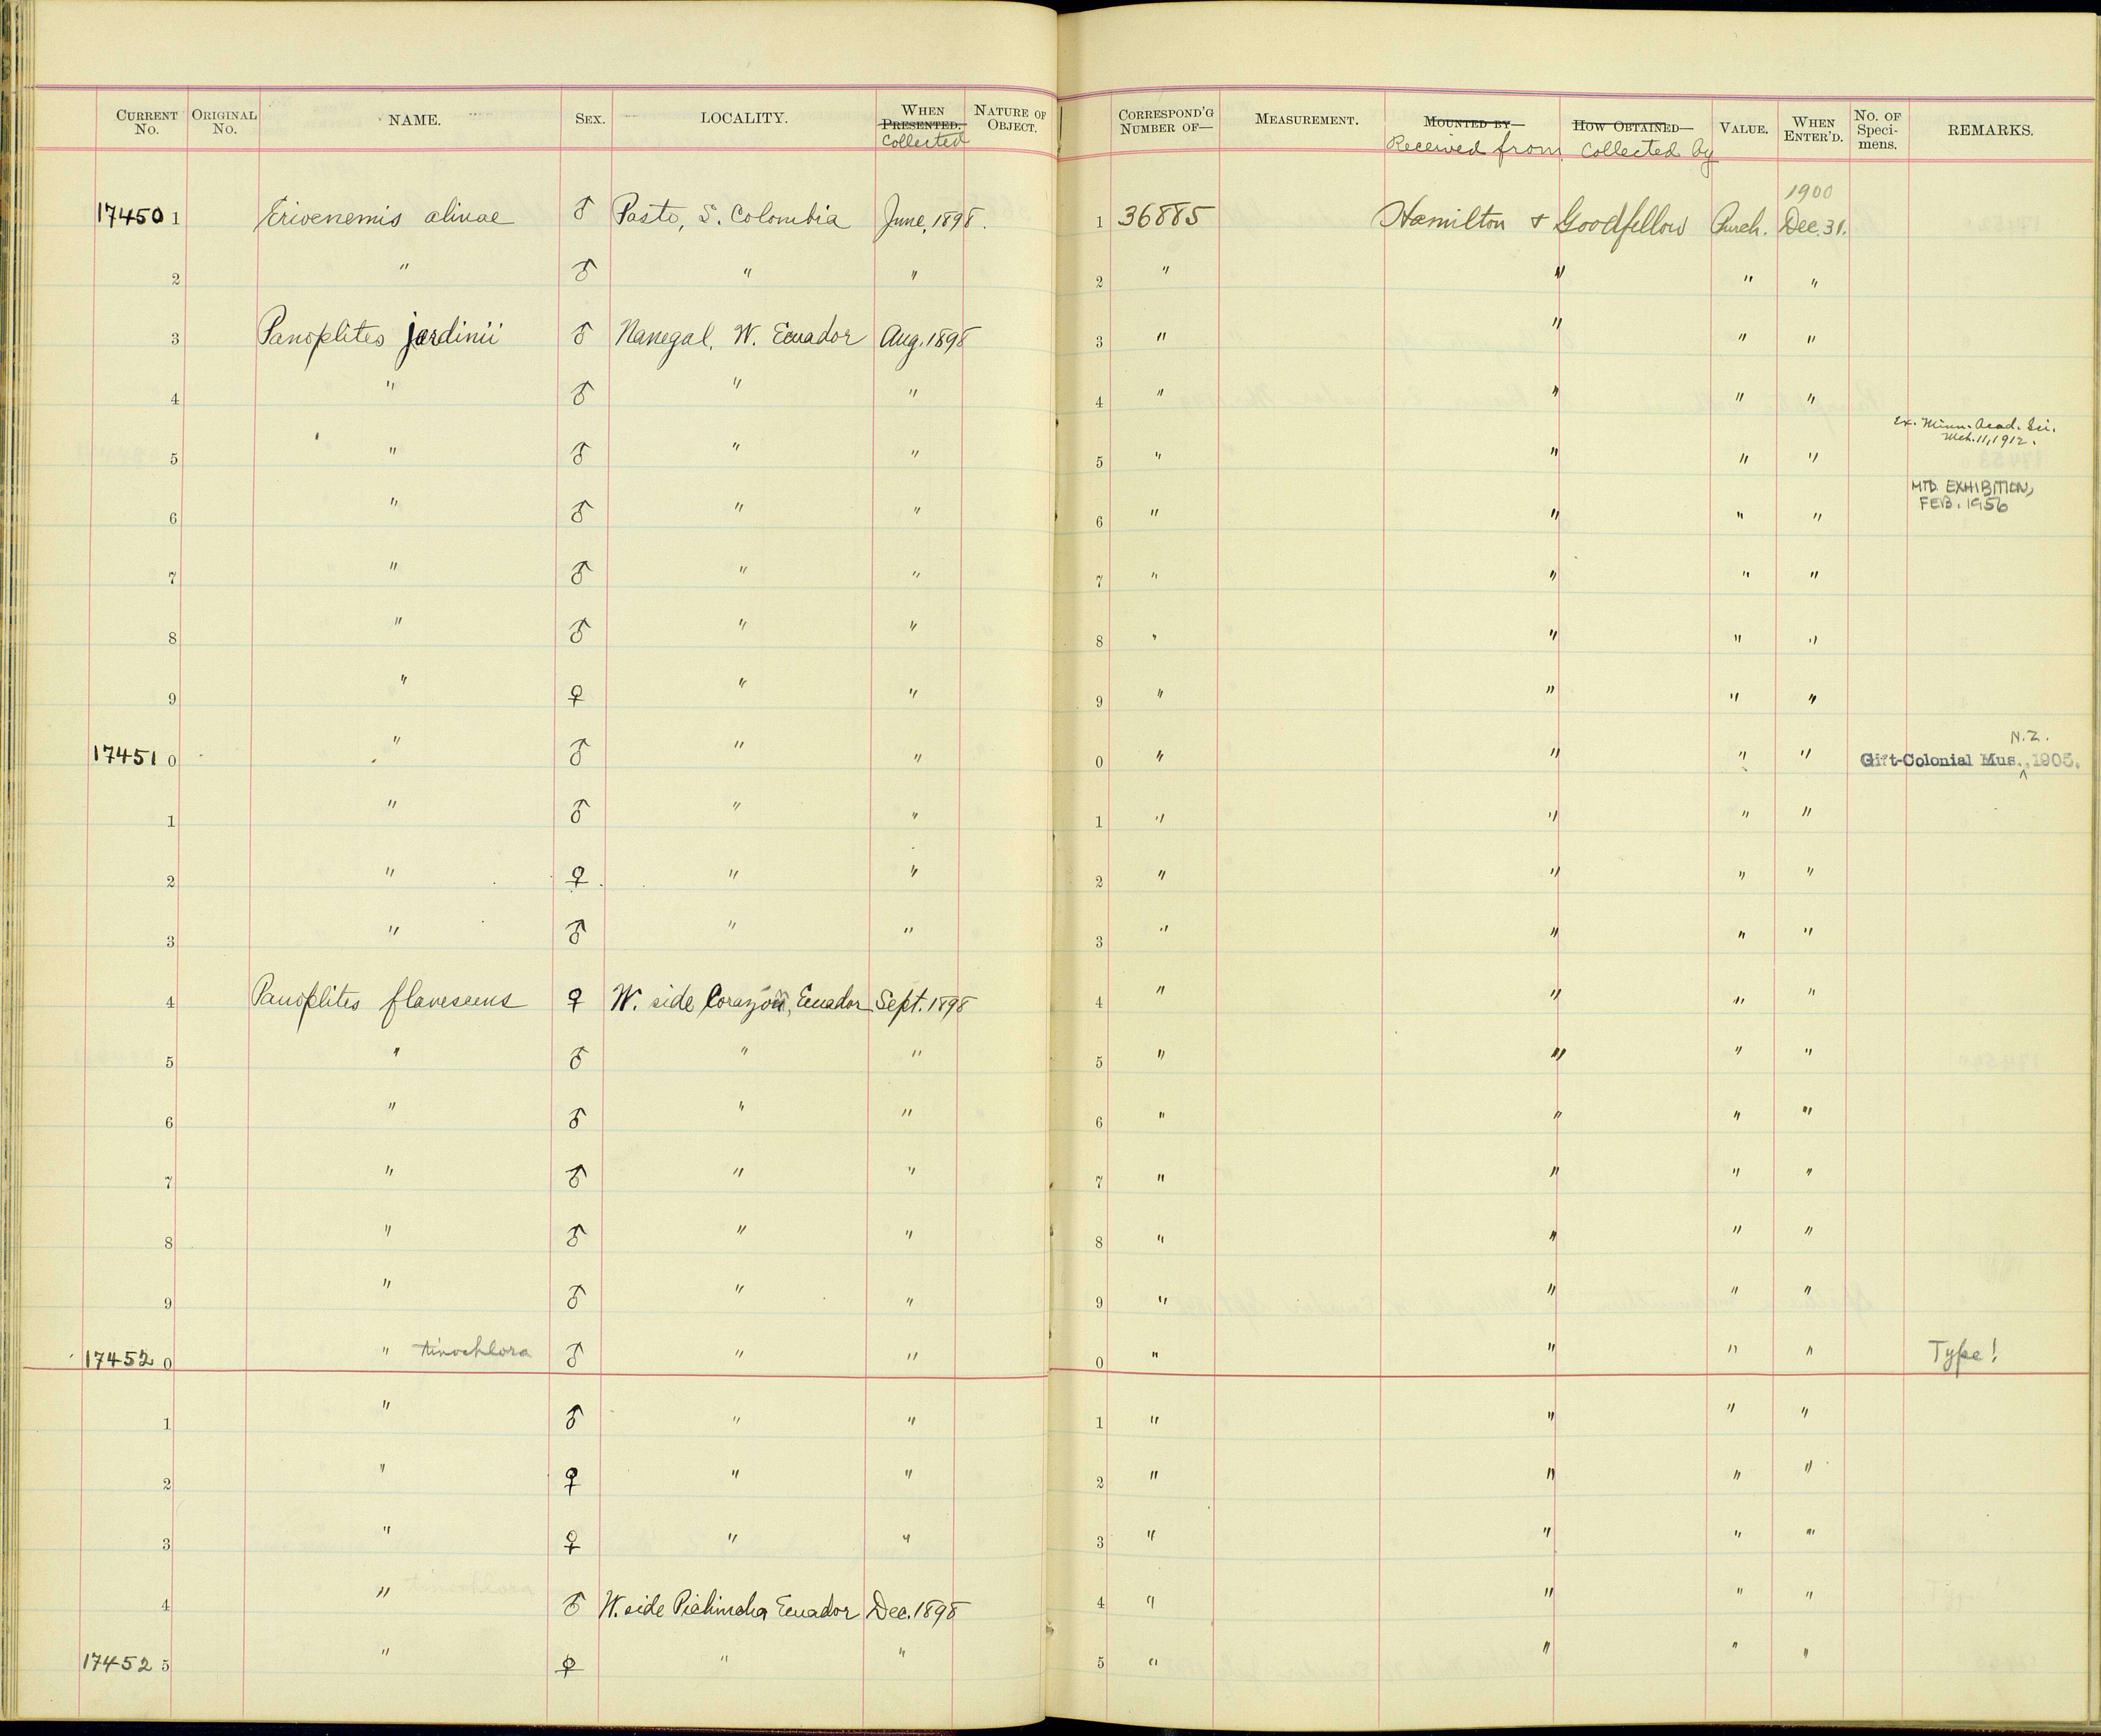 CURRENT No. ORIGINAL No. NAME. SEX. LOCALITY. WHEN PRESENTED. Collected NATURE OF OBJECT. CORRESPOND'G NUMBER OF— MEASUREMENT. MOUNTED BY— Received from HOW OBTAINED— Collected by VALUE. WHEN ENTER'D. No. OF Speci-mens. REMARKS.
1900
17450 1 Eriocnemis alinae ♂ Pasto, S. Colombia June, 1898. 1 36885 Hamilton & Goodfellow Purch. Dec. 31.
2 " ♂ " " 2 " " " "
3 Panoplites jardinii ♂ Nanegal, W. Ecuador Aug. 1898 3 " " " "
4 " ♂ " " 4 " " " "
5 " ♂ " " 5 " " " " Ex. Minn. Acad. Sci. Mch. 11, 1912.
6 " ♂ " " 6 " " " " MTD. EXHIBITION, FEB. 1956
7 " ♂ " " 7 " " " "
8 " ♂ " " 8 " " " "
9 " ♀ " " 9 " " " "
17451 0 " ♂ " " 0 " " " " Gift-Colonial Mus., N.Z. 1905.
1 " ♂ " " 1 " " " "
2 " ♀ " " 2 " " " "
3 " ♂ " " 3 " " " "
4 Panoplites flavescens ♀ W. side Corazon, Ecuador Sept. 1898 4 " " " "
5 " ♂ " " 5 " " " "
6 " ♂ " " 6 " " " "
7 " ♂ " " 7 " " " "
8 " ♂ " " 8 " " " "
9 " ♂ " " 9 " " " "
17452 0 " tinochlora ♂ " " 0 " " " " Type!
1 " ♂ " " 1 " " " "
2 " ♀ " " 2 " " " "
3 " ♀ " " 3 " " " "
4 " ♂ W. side Pichincha Ecuador Dec. 1898 4 " " " "
17452 5 " ♀ " " 5 " " " "